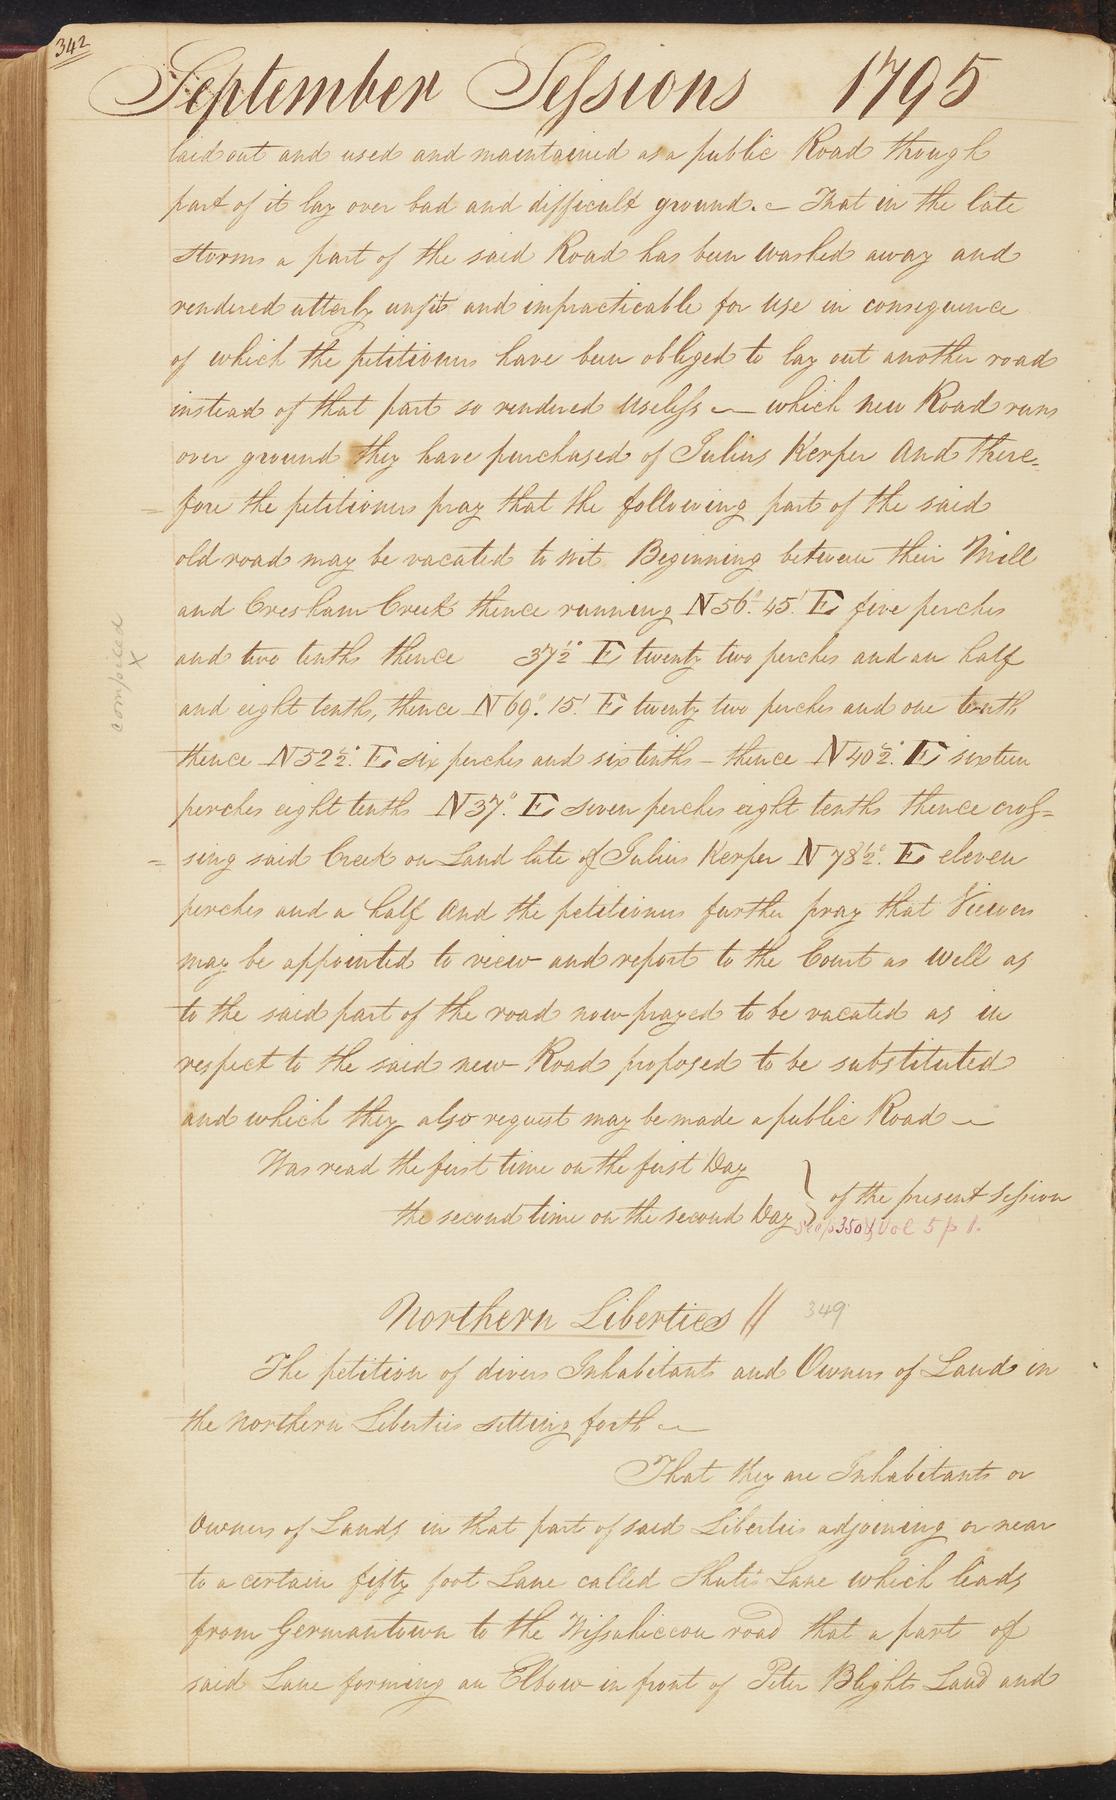 342
September Sessions 1795
laid out and used and maintained as a public Road though
part of it lay over bad and difficult ground. – That in the late
storms a part of the said Road has been washed away and
rendered utterly unfit and impracticable for use in consequence
of which the petitioners have been obliged to lay out another road
instead of that part so rendered useless — which new Road runs
over ground they have purchased of Julius Kerper And there=
= fore the petitioners pray that the following part of the said
old road may be vacated to wit Beginning between their Mill
and Cresham Creek thence running N 56°. 45' E five perches
and two tenths thence 37½° E twenty two perches and an half
and eight tenths, thence N 69°. 15' E twenty two perches and one tenth
thence N 52½°. E six perches and six tenths – thence N 40½°. E sixteen
perches eight tenths N 37°. E seven perches eight tenths thence cros=
= sing said Creek on Land late of Julius Kerper N 78½°. E eleven
perches and a half And the petitioners further pray that Viewers
may be appointed to view and report to the Court as well as
to the said part of the road now prayed to be vacated as in
respect to the said new Road proposed to be substituted
and which they also request may be made a public Road —
Was read the first time on the first Day
the second time on the second Day } of the present Session
See p 350 & Vol 5 p 1.
compiled
x
Northern Liberties // 349
The petition of divers Inhabitants and Owners of Land in
the Northern Liberties setting forth —
That they are Inhabitants or
Owners of Lands in that part of said Liberties adjoining or near
to a certain fifty foot Lane called Lane which leads
from Germantown to the Wissahiccon road that a part of
said Lane forming an Elbow in front of Peter Blights Land and